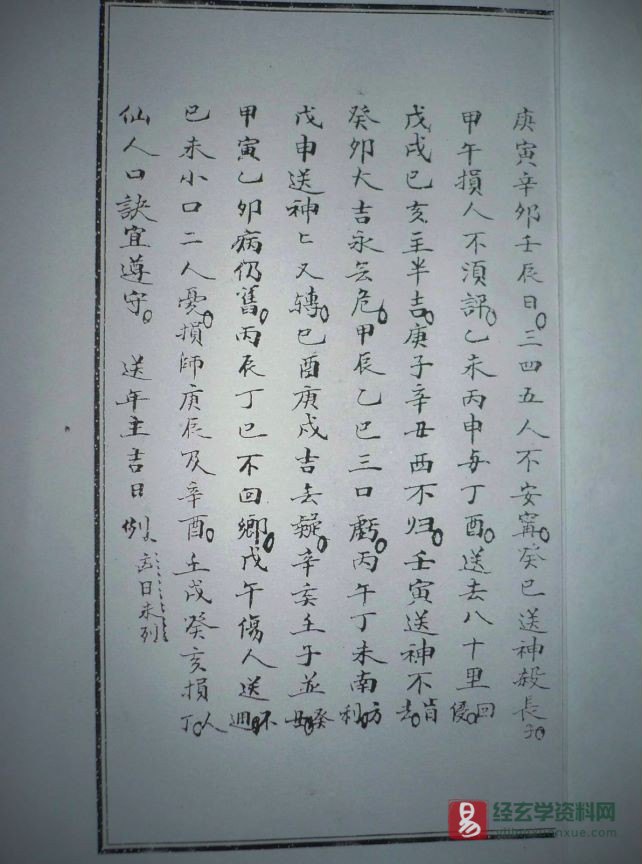 庚寅辛夘壬辰日。三四五人不安寗。癸巳送神殺長子。
甲午損人不須評。乙未丙申与丁酉。送去八十里回侵。
戊戌巳亥主半吉。庚子辛丑西不归。壬寅送神不肯去。
癸夘大吉永無危。甲辰乙巳三口虧。丙午丁未南方利。
戊申送神匕又轉。巳酉庚戍吉去疑。辛亥壬子並癸丑。
甲寅乙夘病仍舊。丙辰丁巳不回鄉。戊午傷人送不迴。
巳未小口二人憂。損師庚辰及辛酉。壬戍癸亥損人丁。
仙人口訣宜遵守。 送年主吉日例。
日未列
易 经玄学资料网